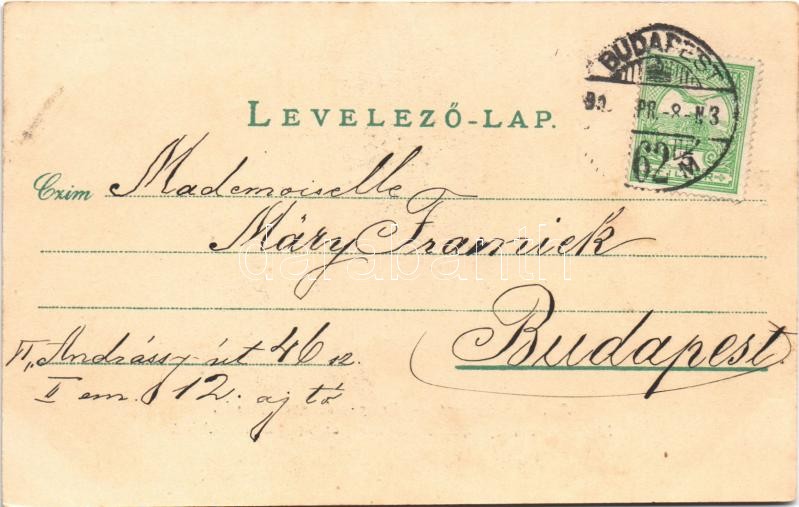 BUDAPEST
PR. -8.-N3
62
M
LEVELEZŐ-LAP.
Czim Mademoiselle
Máry
Budapest.
VI., Andrássy út 46 sz.
II em. 12. ajtó
darabanth